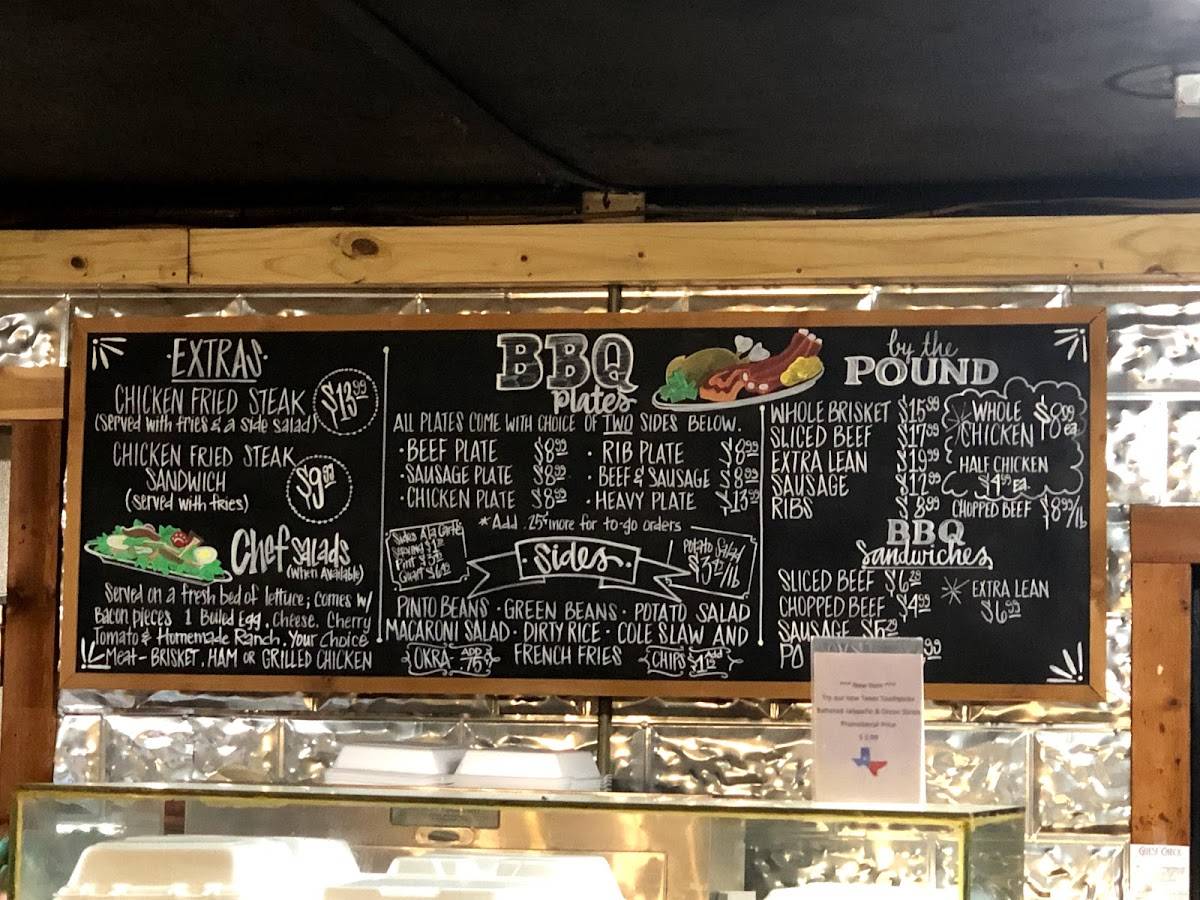 ·EXTRAS·
CHICKEN FRIED STEAK $13.99
(served with fries & a side salad)
CHICKEN FRIED STEAK
SANDWICH $9.99
(served with fries)
Chef SALADS
(When Available)
Served on a fresh bed of lettuce; comes w/
Bacon pieces 1 Boiled Egg, Cheese, Cherry
Tomato & Homemade Ranch. Your Choice
Meat - BRISKET, HAM OR GRILLED CHICKEN
BBQ
Plates
ALL PLATES COME WITH CHOICE OF TWO SIDES BELOW.
·BEEF PLATE $8.99
·SAUSAGE PLATE $8.99
·CHICKEN PLATE $8.99
·RIB PLATE $8.99
·BEEF & SAUSAGE $8.99
·HEAVY PLATE $13.99
*Add .25¢ more for to-go orders
Sides A la Carte
Serving
Pint
Quart
·Sides·
Potato Salad
/lb
PINTO BEANS · GREEN BEANS · POTATO SALAD
MACARONI SALAD · DIRTY RICE · COLE SLAW AND
OKRA ADD .75¢
FRENCH FRIES
CHIPS Add
by the
POUND
WHOLE BRISKET $15.99
SLICED BEEF $17.99
EXTRA LEAN $19.99
SAUSAGE
RIBS $8.99
WHOLE
CHICKEN $8.99 ea.
HALF CHICKEN
$4.95 EA.
CHOPPED BEEF $8.99/lb
BBQ
Sandwiches
SLICED BEEF $6.29
CHOPPED BEEF $4.99
SAUSAGE $5.29
PO
99
EXTRA LEAN
$6.99
*** New Item ***
Try our new Texas Toothpicks
Battered Jalapeño & Onion Strips
Promotional Price
Guest Check